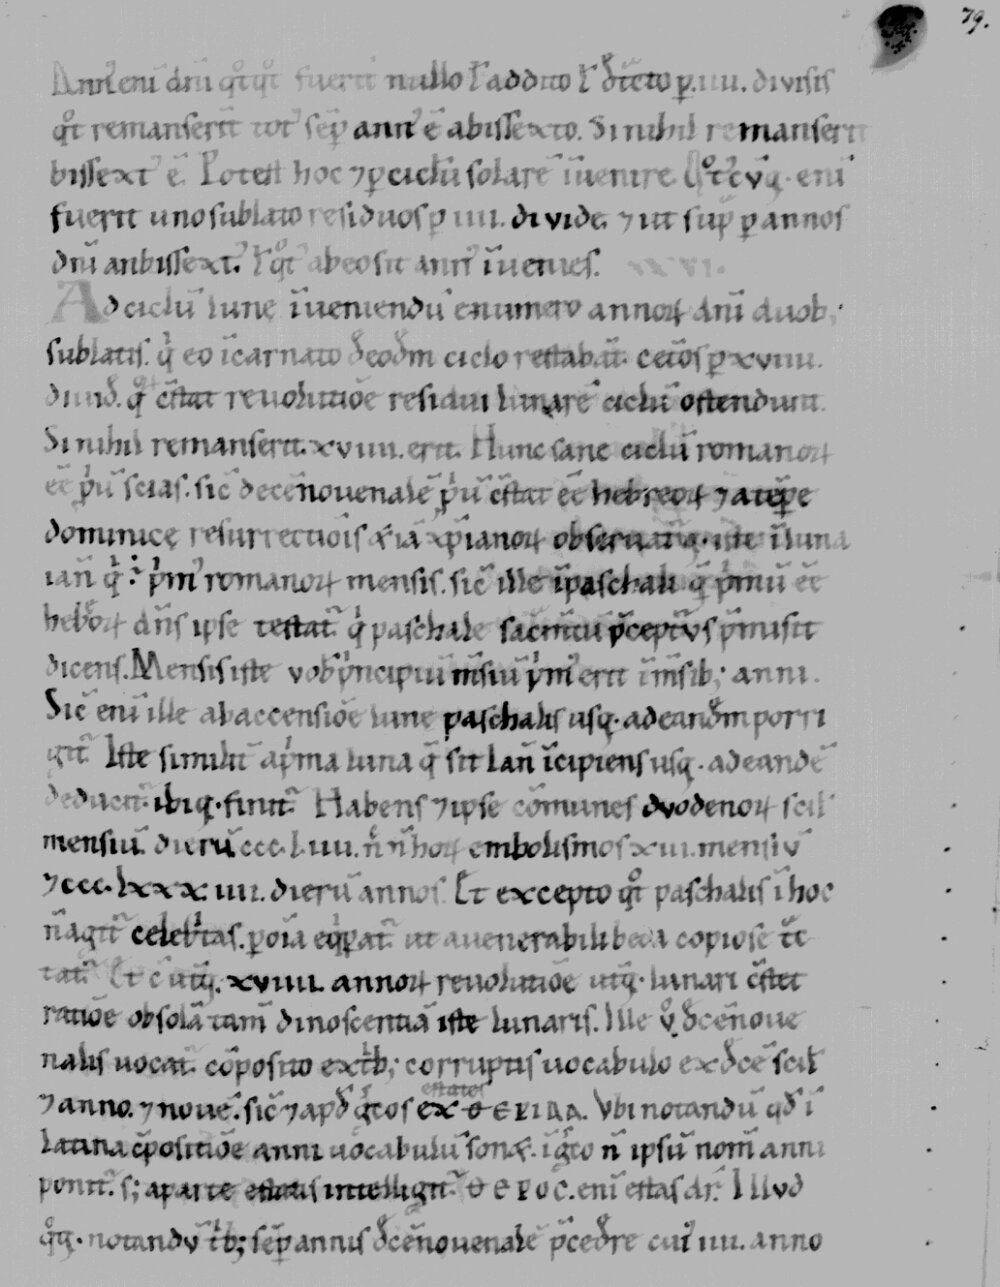 79.
Annˀ enī dn̄i q̊tq̊t fuerīt nullo ł addito ł đt̄cto ꝑ .iiii. divisis
q̊t remanserīt totˀ sēꝑ annˀ ē abissexto. Si nihil remanserīt
bissextˀ ē. Potest hoc ⁊ ꝑ ciclū solarē īvenire. Q̊tˀcv̄q. enī
fuerīt uno sublato residuos ꝑ iiii. divide. ⁊ ut sup̄ ꝑ annos
dn̄i anbissextˀ. ł q̊tˀ abeo sit annˀ īvenies. XXVI.
Ad ciclū lune īveniendū enumero annoꝝ dn̄i duob;
sublatis. q̓ eo īcarnato đeođm ciclo restabāt. cet̄os ꝑ xviiii.
diuiđ. q̄ c̄stat revolutiōe residui lunarē ciclū ostendunt.
Si nihil remanserīt. xviiii. erit. Hunc sane ciclū romanoꝝ
eē ꝓ̓ū scias. sic̄ decēnovenalē ꝓ̓ū c̄stat eē hebreoꝝ ⁊ atēꝑe
dominicę resurrectiōis
dominice. iste ī luna
ian̄ q̓ ÷ p̓mˀ romanoꝝ mensis. sic̄ ille īpaschali q̄ p̓mū eē
hebŏꝝ dn̄s ipse testatˀ. q̓ paschale sacm̄tū p̄ceptv̄s p̄misit
dicens. Mensis iste vob̄ p̓ncipiū m̄siū p̓mˀ erit īm̄sib; anni.
Sic̄ enī ille ab accensiōe lune paschalis usq. ad eanđm porri
gitˀ. Iste similit̄ ap̓ma luna q̄ sit Ian̄ īcipiens usq. ad eandē
deducitˀ. ibiq. finitˀ. Habens ⁊ ipse cōmunes dvodenoꝝ scil̄
mensiū. dierū ccc.l.iiii. embolismos xiii. mensiv̄
⁊ ccc.lxxx.iiii. dierū annos. Et excepto q̊t paschalis ī hoc
n̄ agitˀ celeb̓tas. ꝑ oīa eq̓ꝑatˀ. ut avenerabili beda copiose t̄c
tatˀ. Et c̄ ut̄q. xviiii. annoꝝ revolutiōe utq. lunari c̄stet
ratiōe obsolā tam̄ dinoscentiā iste lunaris. Ille v̊ đcēnove
nalis uocatˀ. cōposito ext̓b; corruptis uocabulo ex đcē scil̄
⁊ anno. ⁊ novē. sic̄ ⁊ apđ g̓cos ex
estates
ΘΕΡΙΔΑ. Vbi notandū qđ ī
latina c̄positiōe anni uocabulū sonat. īg̓co n̄ ipsū nom̄ anni
ponitˀ. s; aparte estatis intelligitˀ. ΘΕΡΟC. enī estas dr̄. Illvd
q̊q. notandv̄ t̓b; sēꝑ annis đcēnovenalē p̄ceđre cui iiii. anno